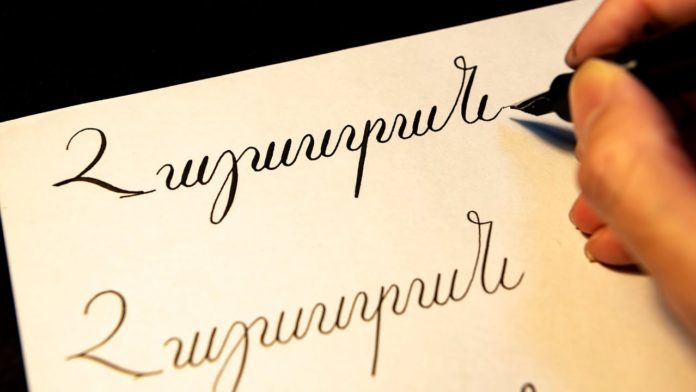 Հայաստան
Հայաստան